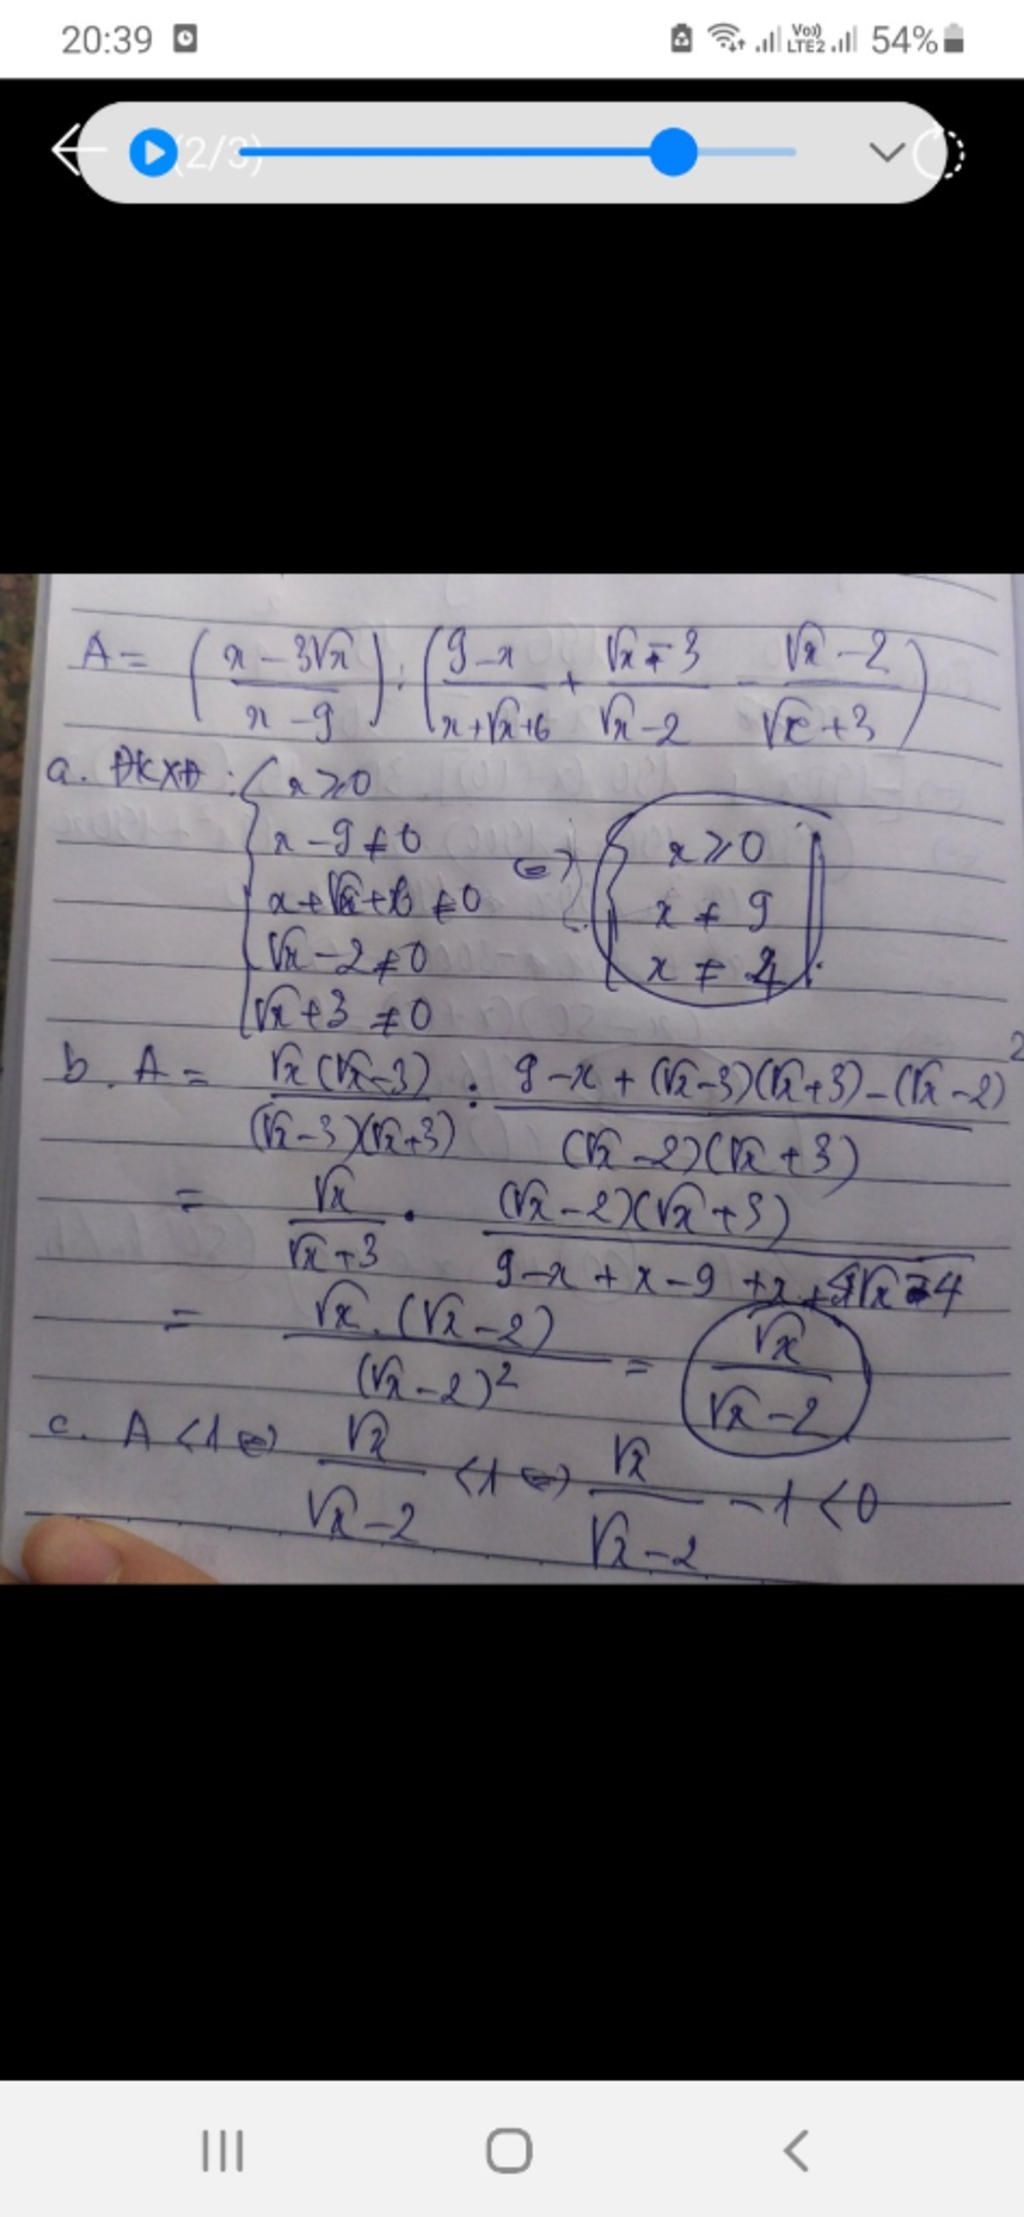 20:39 Vo)) LTE2 54%
(2/3)
A = (x - 3√x / x - 9) : (9 - x / x + √x + 6 + √x - 3 / √x - 2 - √x - 2 / √x + 3)
a. ĐKXĐ : { x ≥ 0
x - 9 ≠ 0 <=> { x ≥ 0
x + √x + 6 ≠ 0 x ≠ 9
√x - 2 ≠ 0 x ≠ 4
√x + 3 ≠ 0
b. A = √x(√x - 3) / (√x - 3)(√x + 3) : 9 - x + (√x - 3)(√x + 3) - (√x - 2)² / (√x - 2)(√x + 3)
= √x / √x + 3 . (√x - 2)(√x + 3) / 9 - x + x - 9 + x + 4√x - 4
= √x . (√x - 2) / (√x - 2)² = √x / √x - 2
c. A < 1 <=> √x / √x - 2 < 1 <=> √x / √x - 2 - 1 < 0